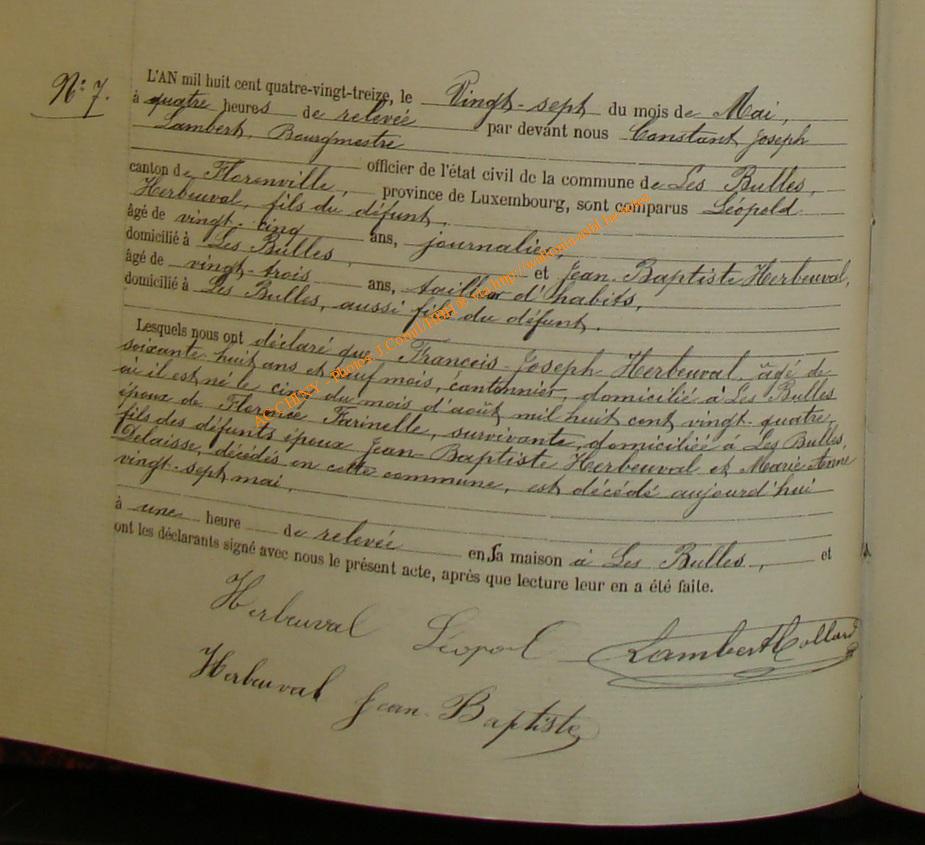 Nº 7.
L'AN mil huit cent quatre-vingt-treize, le Vingt-sept du mois de Mai,
à quatre heures de relevée par devant nous Constant Joseph
Lambert, Bourgmestre
officier de l'état civil de la commune de Les Bulles,
canton de Florenville, province de Luxembourg, sont comparus Léopold
Herbeuval, fils du défunt,
âgé de vingt-cinq ans, journalier,
domicilié à Les Bulles, et Jean-Baptiste Herbeuval,
âgé de vingt-trois ans, tailleur d'habits,
domicilié à Les Bulles, aussi fils du défunt.
Lesquels nous ont déclaré que François Joseph Herbeuval, âgé de
soixante-huit ans et neuf mois, cantonnier, domicilié à Les Bulles
où il est né le cinq du mois d'août mil huit cent vingt-quatre,
époux de Florence Farinelle, survivante, domiciliée à Les Bulles,
fils des défunts époux Jean-Baptiste Herbeuval et Marie Anne
Delaisse, décédés en cette commune, est décédé aujourd'hui
vingt-sept mai,
à une heure de relevée en sa maison à Les Bulles, et
ont les déclarants signé avec nous le présent acte, après que lecture leur en a été faite.
Herbeuval Léopol Lambert Collard
Herbeuval Jean-Baptiste